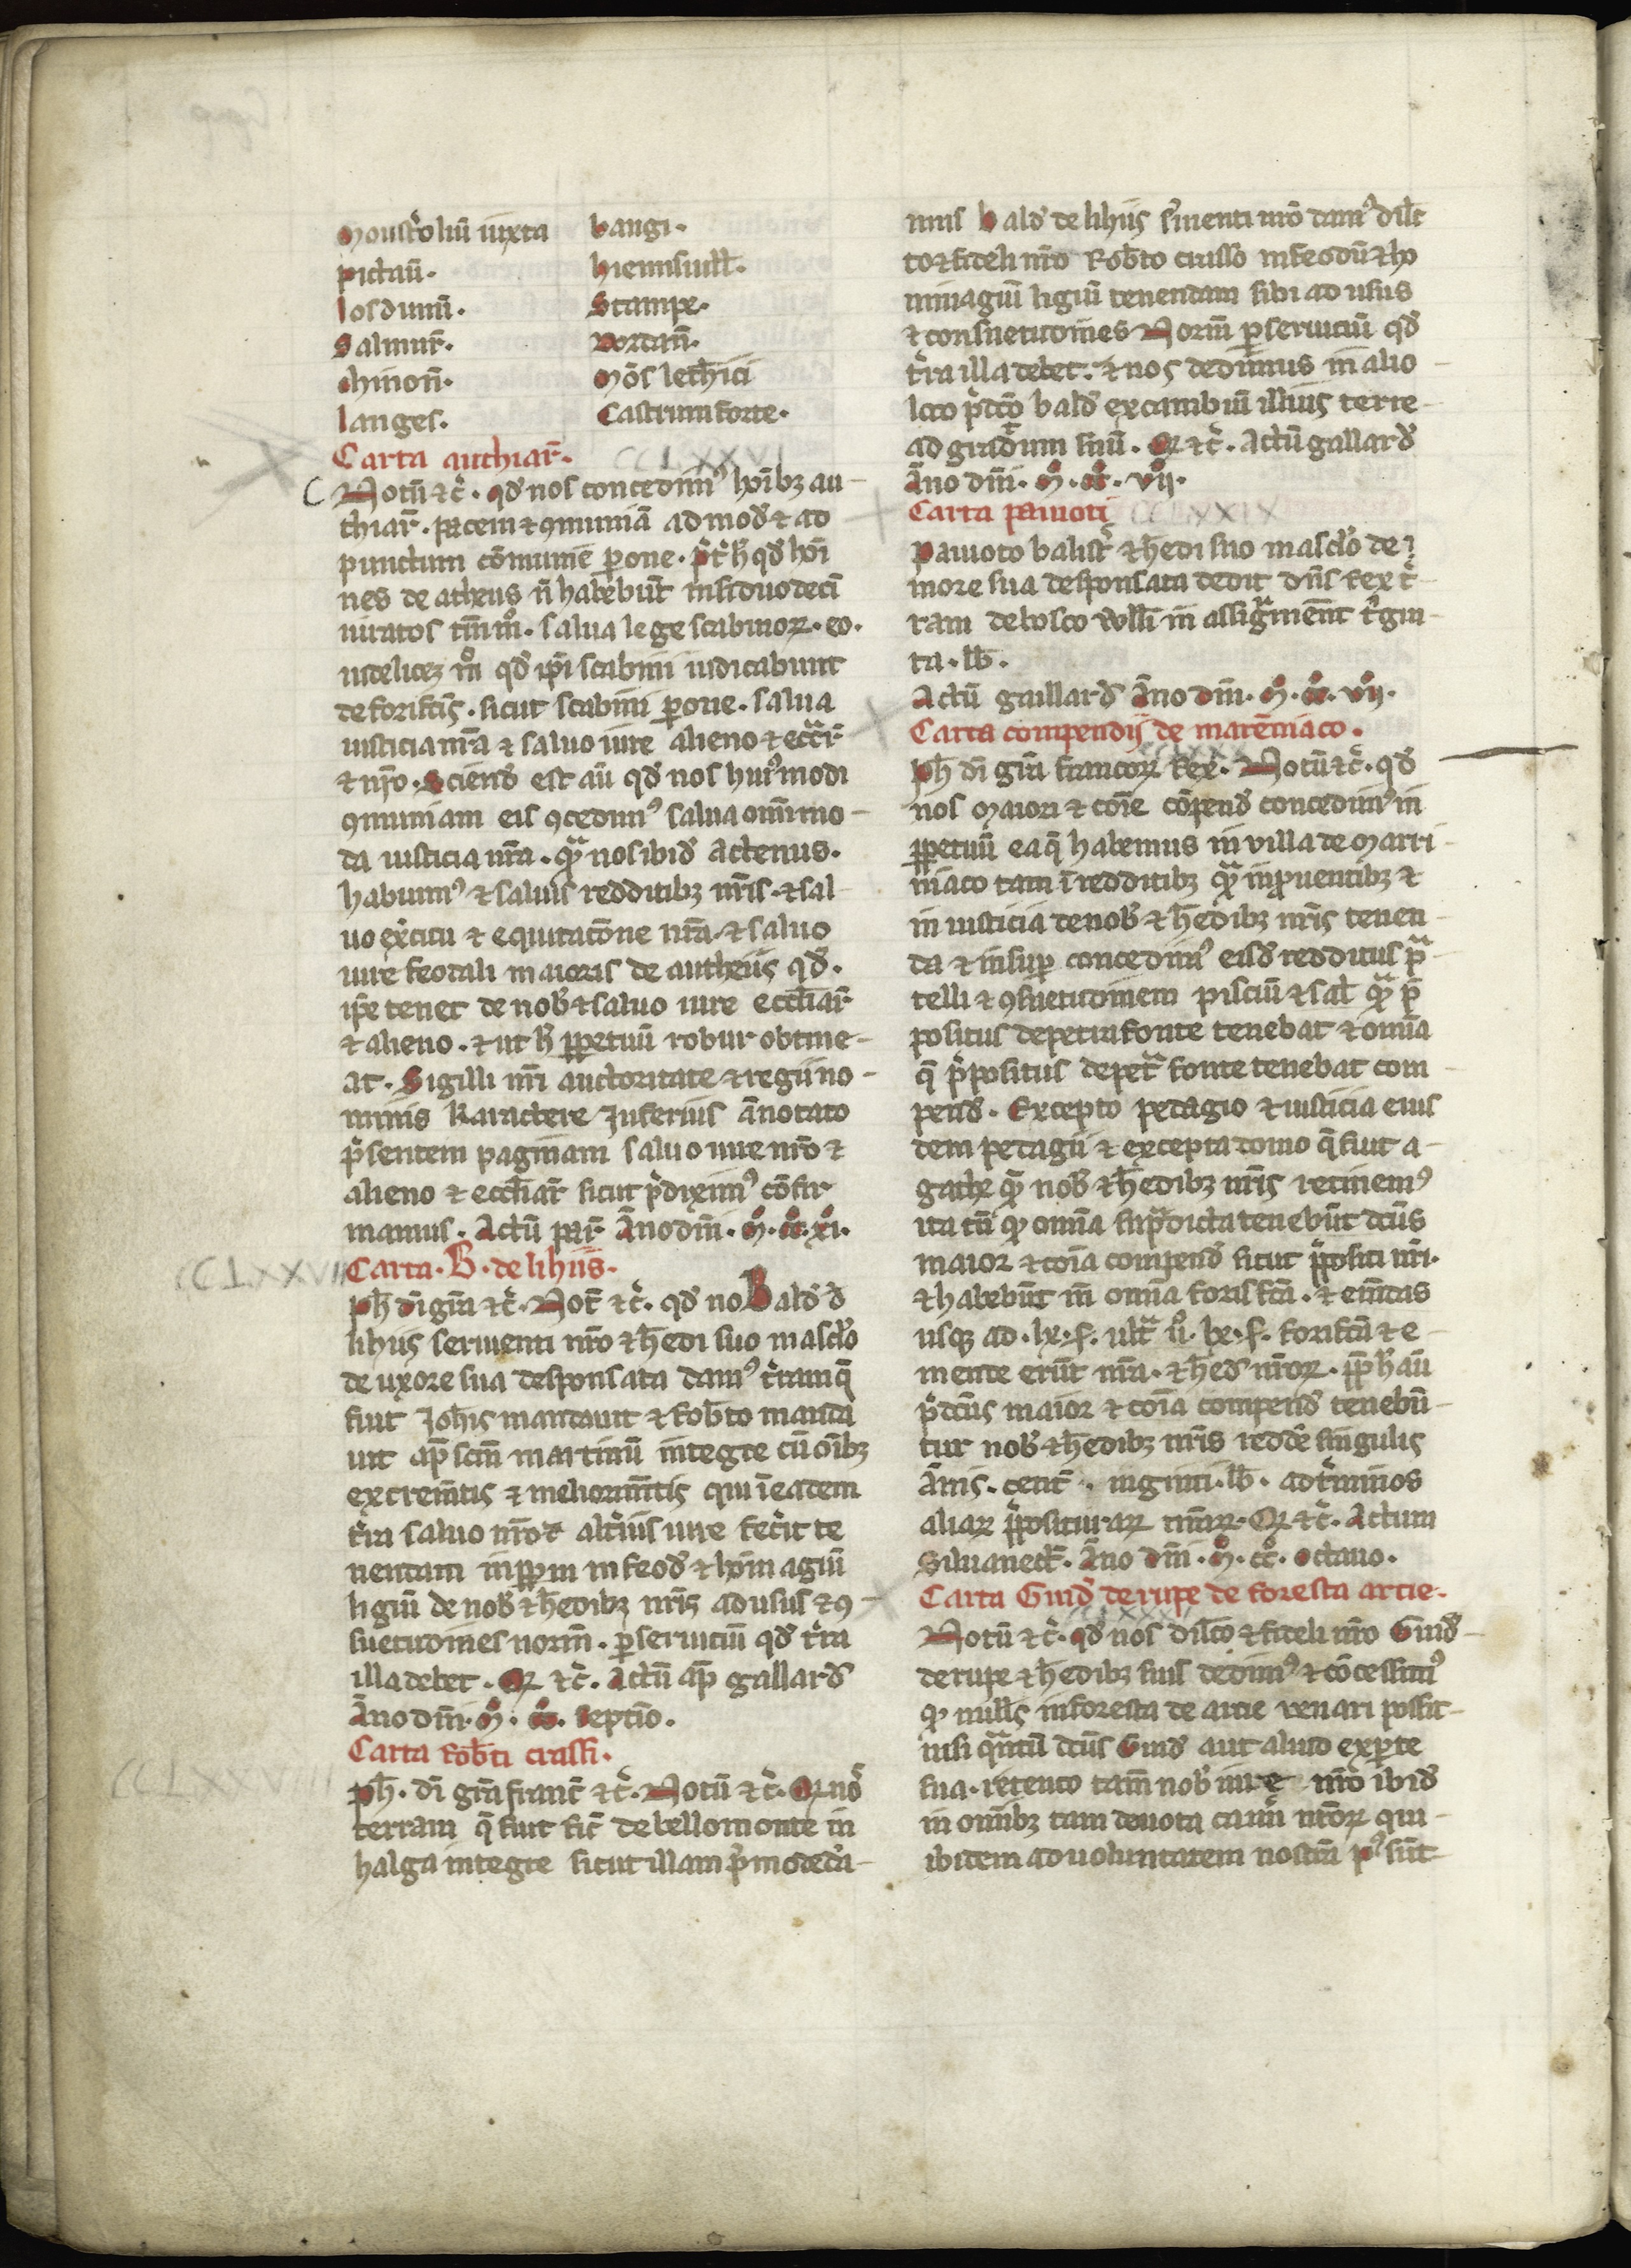 Monstroliū iuxta bangi.
pictau̅. hienuiull̅.
losdunū. Stampe.
Salmur̅. Dordan̅.
chinon̅. Mōs lecherici
langes. Castrum forte.
Carta authiar̅. CCLXXVI
Notū ⁊c̅. qd̅ nos concedim⁹ hoı̅bȝ au-
thiar̅. pacem ⁊ ꝯmuniā ad mod̅ ⁊ ad
punctum cōmunie perone. p̅t̅ h̅ qd̅ hoı̅
nes de atheus n̅ habebūt nisi duodeci̅
iuratos tm̅m°. salua lege scabinorꝝ. eo.
uidelicet m° qd̅ ip̅i scabini iudicabunt
de forifc̅is. sicut scabini perone. salua
iusticia nr̅a ⁊ saluo iure alieno ⁊ ecc̅ar̅
⁊ nr̅o. Sciend̅ est au̅ qd̅ nos hui⁹modi
ꝯmuniam eis ꝯcedim⁹ salua omnimo-
da iusticia nr̅a. qᵃ nos ibid̅ actenus.
habuim⁹ ⁊ saluis redditibȝ nr̅is. ⁊ sal-
uo ex̅citu ⁊ equitatōne nr̅a. ⁊ saluo
iure feodali maioris de autheiis qd̅.
ip̅e tenet de nob̅ ⁊ saluo iure eccl̅iar̅
⁊ alieno. ⁊ ut h̅ p̅petuū robur obtine-
at. Sigilli nr̅i auctoritate ⁊ regii no-
minis karactere Inferius ānotato
p̅sentem paginam saluo iure nr̅o ⁊
alieno ⁊ eccl̅iar̅ sicut p̅diximus cōfir
mamus. Actū par̅ Āno dn̅i. M°. cc°. xı°.
Carta. B. de lihiis. CCLXXVII
ph̅ di̅ gr̅a ⁊c̅. Not̅ ⁊c̅. qd̅ no Bald̅ d̅
lihiis seruienti nr̅o ⁊ h̅edi suo masclo
de uxore sua desponsata dam⁹ t̅ram q̅
fuit Ioh̅is mandauit ⁊ Rob̅to manda
uit ap̅ sc̅m martinū integre cū oı̅bȝ
excrem̅tis ⁊ meliorm̅tis qui i̅ eadem
t̅ra saluo nr̅o ⁊ alt̅ius iure fec̅it te
nendam inpp̅m in feod̅ ⁊ hom̅agiū
ligiū de nob̅ ⁊ h̅edibȝ nr̅is ad usus ⁊ ꝯ-
suetudines norm̅. p̱ seruiciū qd̅ t̅ra
illa debet. Qꝛ ⁊c̅. Actū ap̅ gallard̅
Āno dn̅i. M°. cc°. septīo.
Carta Rob̅ti crassi. CCLXXVIII
ph̅. di̅ gr̅a franc̅ ⁊c̅. Notū ⁊c̅. Qꝛ no̅
terram q̅ fuit fic̅ de bellomonte in
halga integre sicut illam p̅mo dede̅a-
mus bald̅ de lihiis s̅uienti nr̅o dam⁹ dil̅c
to ⁊ fideli nr̅o Rob̅to crasso in feodū ⁊ ho
minagiū ligiū tenendam sibi ad usus
⁊ consuetudines Norm̅ p̱ seruiciū qd̅
t̅ra illa debet. ⁊ nos dedimus in alio
loco p̅dc̅o bald̅ excambiū illius terre
ad gradum suū. Qꝛ ⁊c̅. Actū gallard̅
Āno dn̅i. M°. cc°. vii°.
Carta pauuoti CCLXXIX
Pauuoto balist̅ ⁊ h̅edi suo masclo de
more sua desponsata dedit dn̅s Rex t̅-
ram de bosco Will̅i in assignem̅t t̅gin-
ta. lb̅.
Actū gaillard̅ Āno dn̅i. M°. cc°. vii°.
Carta compendij de marēniaco.
CCLXXX
ph̅ di̅ gr̅a francorꝝ Rex. Notū ⁊c̅. qd̅
nos Maiori ⁊ coı̅e cōpend̅ concedim⁹ in
p̅petuū ea q̅ habemus in villa de Marri
niaco tam i̅ redditibȝ qᵃ in p̱uentibȝ ⁊
in iusticia de nob̅ ⁊ h̅edibȝ nr̅is tenen-
da ⁊ insup̱ concedim⁹ eisd̅ redditus pᵃ-
telli ⁊ ꝯsuetudinem pisciū ⁊ sal̅ qᵃ p̅-
positus de petrafonte tenebat ⁊ omīa
q̅ p̅positus de petᵃ fonte tenebat com-
pend̅. Excepto pedagio ⁊ iusticia eius
dem pedagii ⁊ excepta domo q̅ fuit a-
gathe qᵃ nob̅ ⁊ h̅edibȝ nr̅is retinem⁹
ita tn̅ qꝫ omīa sup̅dicta tenebūt dc̅us
maior ⁊ coı̅a compend̅ sicut p̅positi nr̅i.
⁊ habebūt in̅ omīa forisfc̅a. ⁊ em̅das
usqꝫ ad. lx. s. ultᵃ u°. lx. s. forifc̅a ⁊ e-
mende erūt nr̅a. ⁊ h̅ed̅ nr̅orꝝ. pp̅ h̅ au̅
p̅dc̅us maior ⁊ coı̅a compend̅ tenebū-
tur nob̅ ⁊ h̅edibȝ nr̅is redde̅ singulis
ānis. cent̅. uiginti. lb̅. ad t̅minos
aliarꝝ p̅positurarꝝ nr̅arꝝ. Qꝛ ⁊c̅. Actum
Siluanect̅. Āno dn̅i. M°. cc°. octauo.
Carta Guid̅ de rupe de foresta artie.
CCLXXXI
Notū ⁊c̅. qd̅ nos dil̅co ⁊ fideli nr̅o Guid̅
de rupe ⁊ h̅edibȝ suis dedim⁹ ⁊ cōcessim⁹
qꝫ null̅s in foresta de artie venari possit
nisi qᵃntū dc̅us Guid̅ aut aliud ex p̱te
sua. retento tam̅ nob̅ iure nr̅o ibid̅
in omībȝ tam de uota canū nr̅orꝝ qui
ibidem ad uoluntatem nostrā p⁹sūt